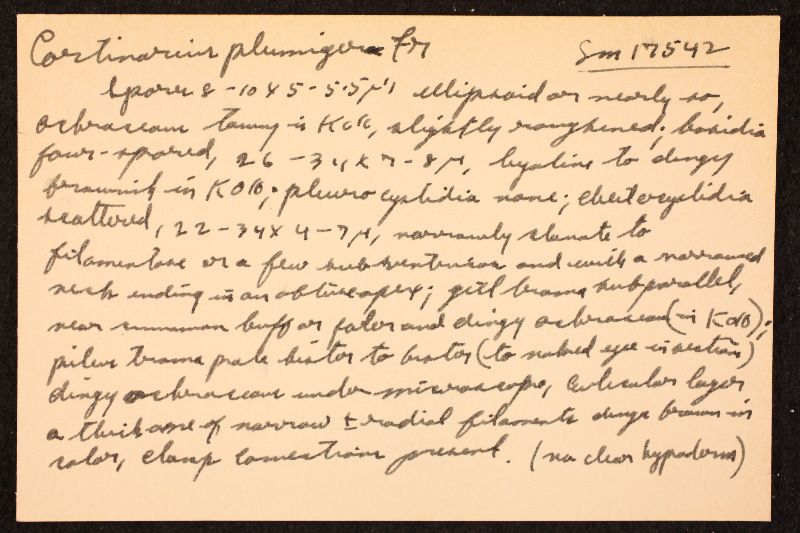 Cortinarius plumiger Fr Sm 17542
Spores 8-10 x 5-5.5 µ ellipsoid or nearly so,
ochraceous tawny in KOH, slightly roughened; basidia
four-spored, 26-34 x 7-8 µ, hyaline to dingy
brownish in KOH; pleurocystidia none; cheilocystidia
scattered, 22-34 x 4-7 µ, narrowly clavate to
filamentose or a few subventricose and with a narrowed
neck ending in an obtuse apex; gill trama subparallel,
near cinnamon buff or paler and dingy ochraceous (in KOH);
pileus trama pale bister to bister (to naked eye in section)
dingy ochraceous under microscope, cuticular layer
a thick one of narrow ± radial filaments dingy brown in
color, clamp connections present. (no clear hypoderm)